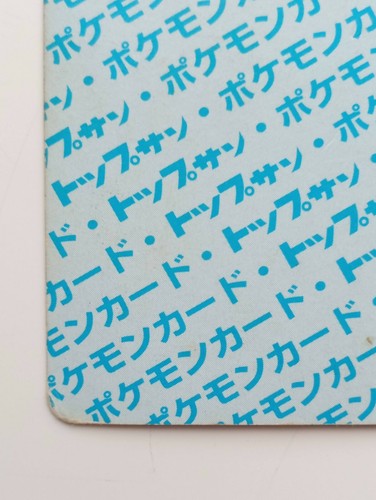 ポケモン
サン・ポケモン
プサン・ポケモン
トップサン・ポケモン
ド・トップサン・ポケ
カード・トップサン・ポ
モンカード・トップサン
ポケモンカード・トップサン
ポケモンカード・トッ
ポケモンカード
ケモン